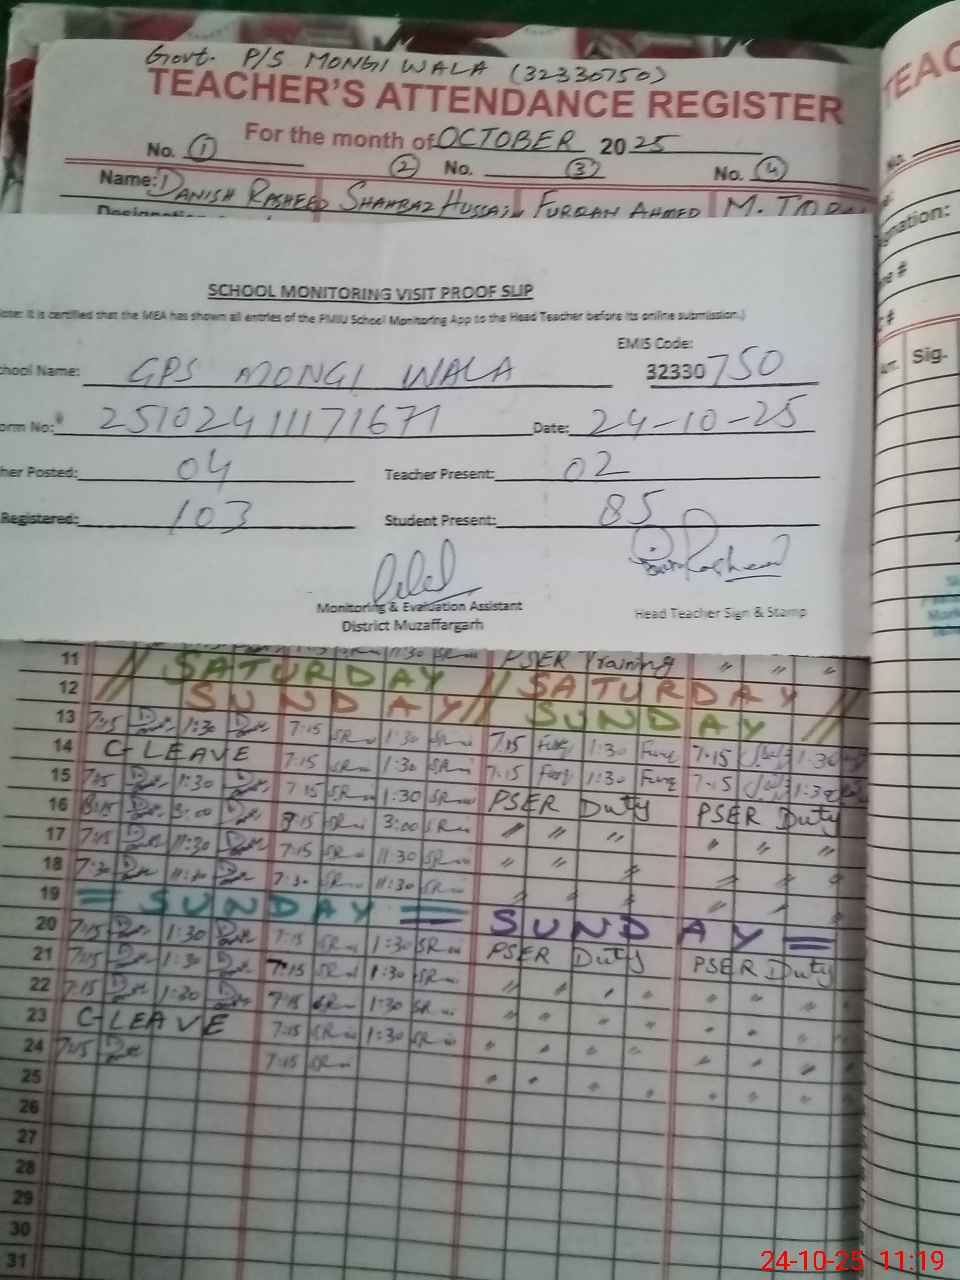 Govt. P/S MONGI WALA (32330750)
TEACHER'S ATTENDANCE REGISTER
For the month of OCTOBER 2025
No. 1 2 No. 3 No. 4
Name: DANISH RASHEED SHAHBAZ HUSSAIN FURQAN AHMED M.
SCHOOL MONITORING VISIT PROOF SLIP
It is certified that the MEA has shown all entries of the PMIU School Monitoring App to the Head Teacher before its online submission.)
EMIS Code:
chool Name: GPS MONGI WALA 32330750
orm No: 25102411171671 Date: 24-10-25
her Posted: 04 Teacher Present: 02
Registered: 103 Student Present: 85
Monitoring & Evaluation Assistant
District Muzaffargarh
Head Teacher Sign & Stamp
11 11:30 PSER Training " " "
12 // SATURDAY // SATURDAY
13 SUNDAY // SUNDAY //
7:15 1:30 7:15 1:30 7:15 1:30 7:15 1:30
14 C-LEAVE 7:15 1:30 7:15 1:30 7:15 1:30
15 7:15 1:30 7:15 1:30 PSER Duty PSER Duty
16 8:15 3:00 8:15 3:00 " " " " " "
17 7:15 11:30 7:15 11:30 " " " " " "
18 7:30 11:30 7:30 11:30 " " " " " "
19 = SUNDAY = SUNDAY =
20 7:15 1:30 7:15 1:30 PSER Duty PSER Duty
21 7:15 1:30 7:15 1:30 " " " " " "
22 7:15 1:30 7:15 1:30 " " " " " "
23 C-LEAVE 7:15 1:30 " " " " " "
24 7:15 7:15 " " " " " "
25
26
27
28
29
30
31
TEAC
No.
nation:
#
Sig.
24-10-25 11:19